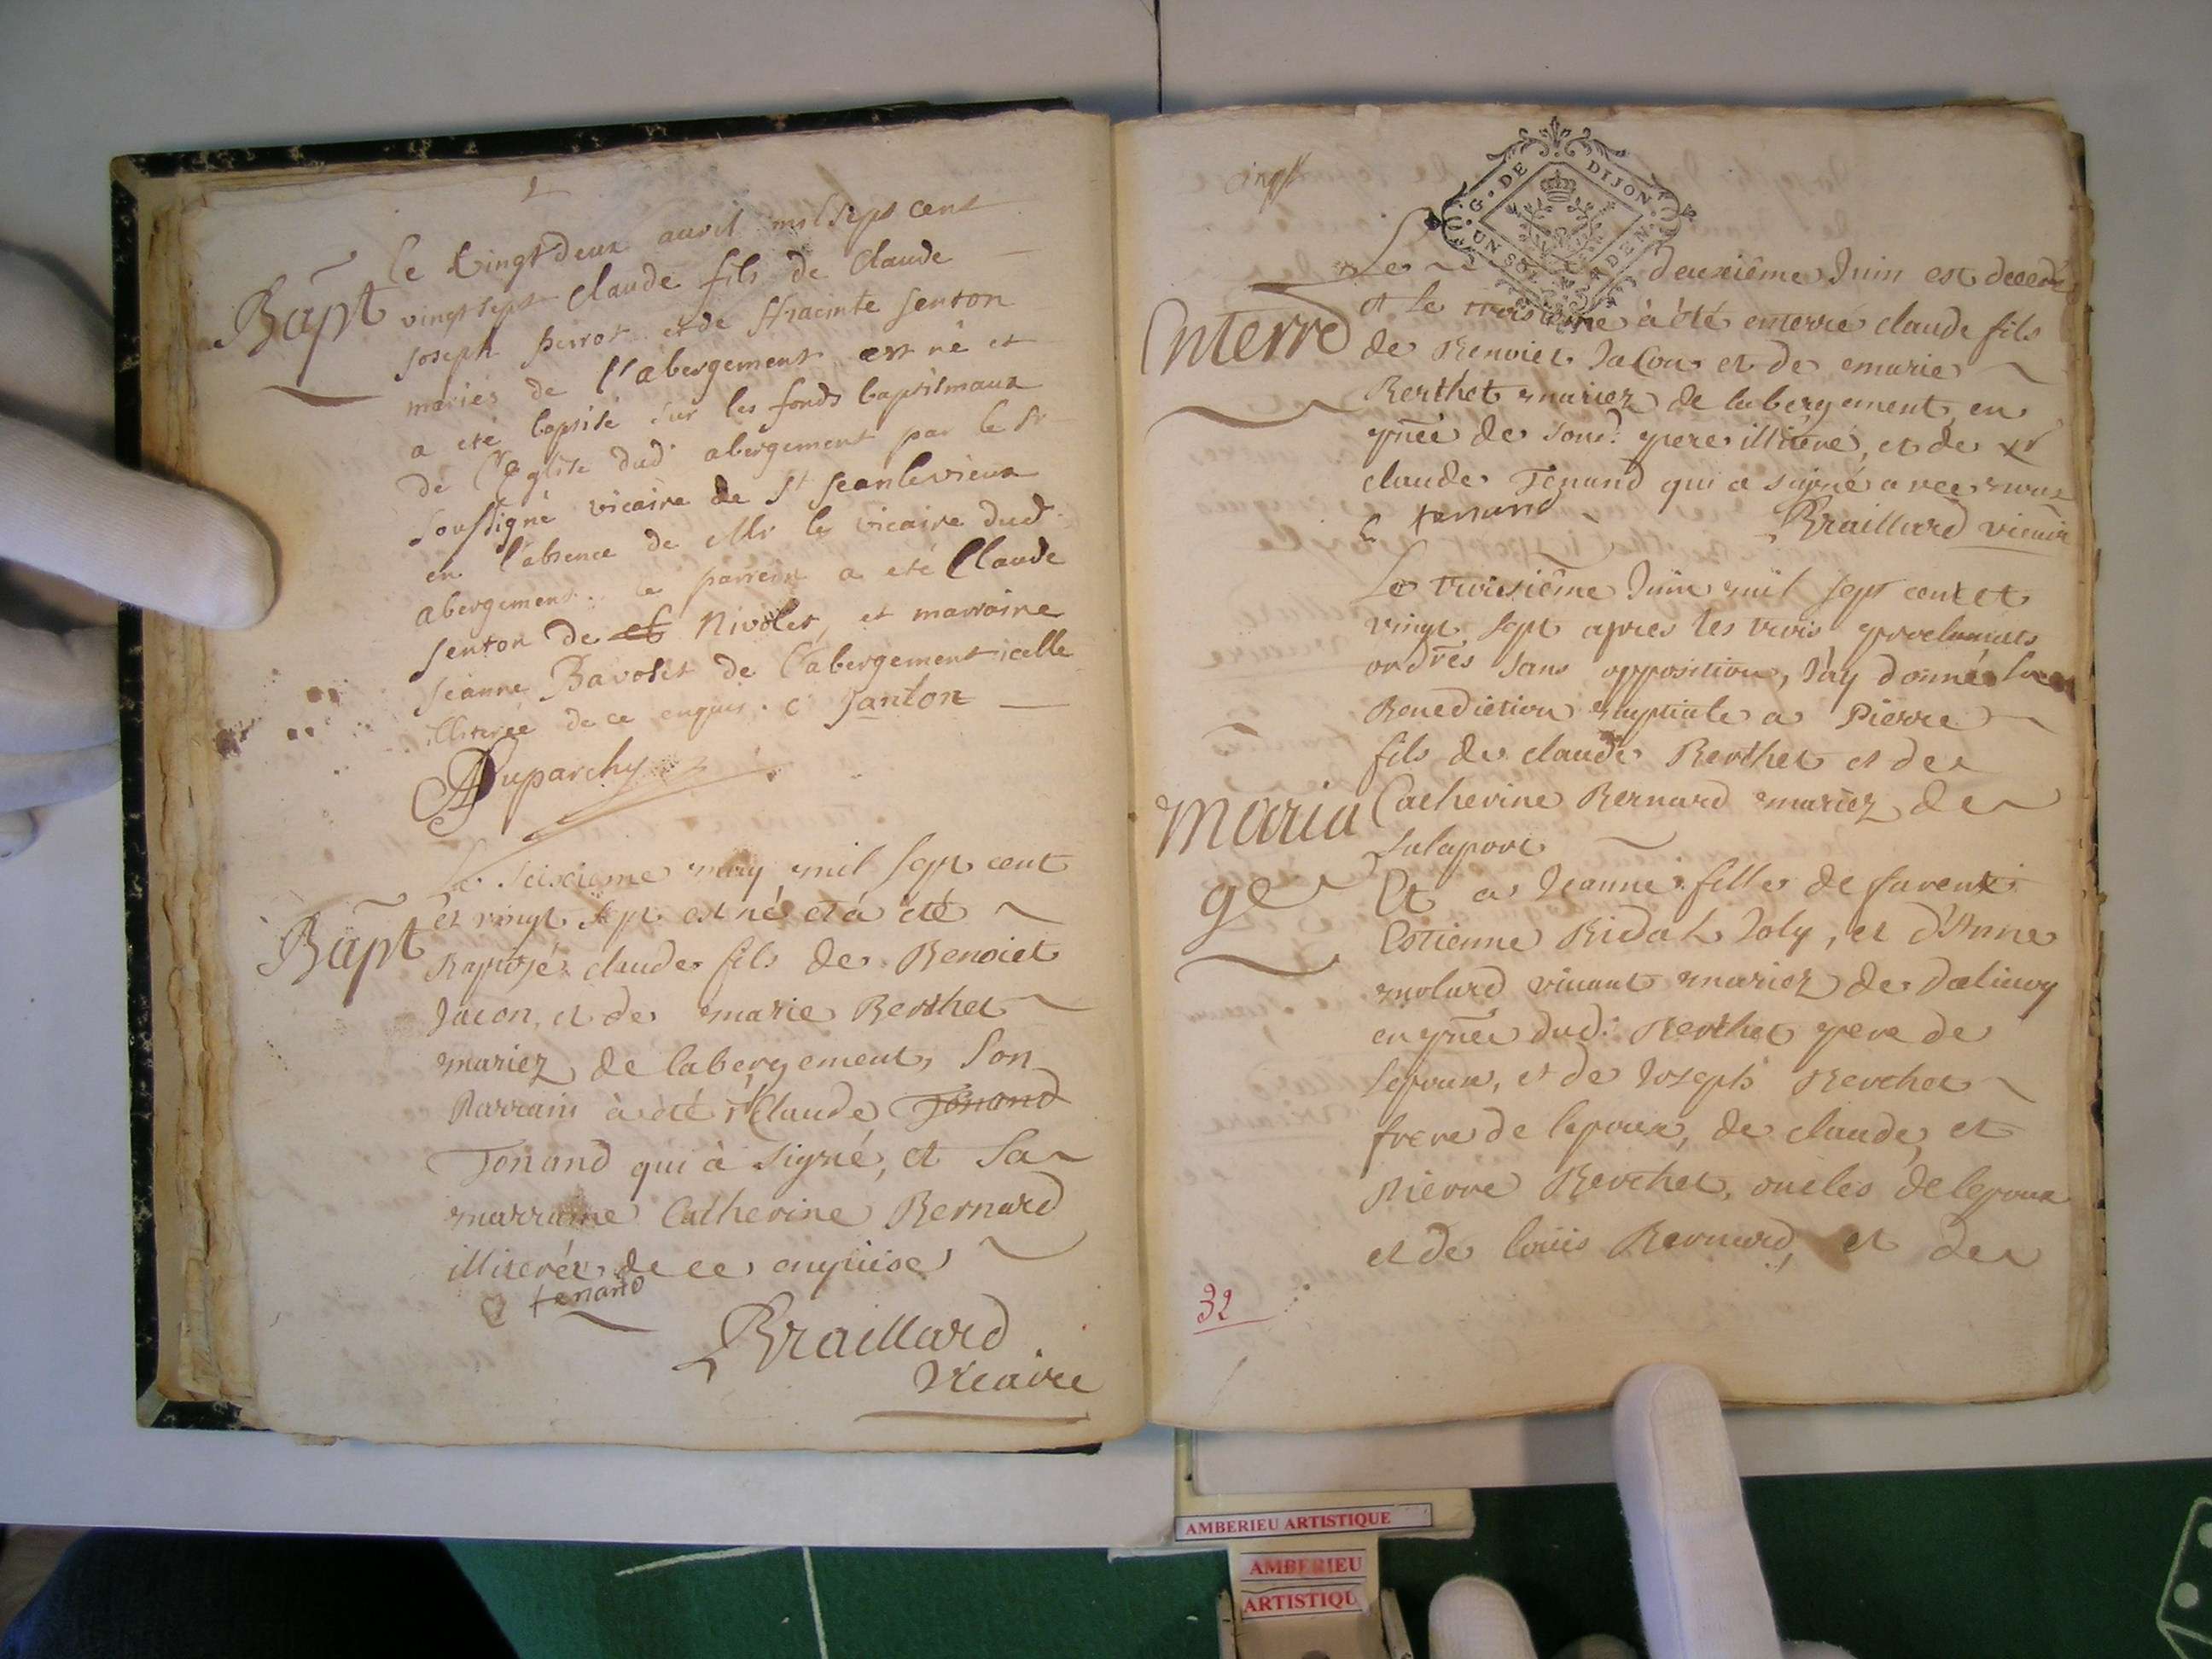 Bapt
le vingt deux avril mil sept cent
vingt sept claude fils de Claude
joseph perrot et de Hiacinte janton
mariés de l'abergement est né et
a eté baptisé sur les fonds baptismaux
de l'Eglise dud abergement par le sr
soussigné vicaire de st jean le vieux
en l'absence de Mr le vicaire dud
abergement. le parrein a eté Claude
janton de Nivolet, et marraine
jeanne Bavolet de l'abergement icelle
illiterée de ce enquis. C janton
Duparchy
Bapt
Le seizieme may mil sept cent
et vingt sept est né et à été
Baptisé claude fils de Benoict
Jacon, et de marie Berthet
mariez de labergement, son
Parrain à été sr Claude Tenand
Tenand qui à signé, et sa
marraine Catherine Bernard
illiterée de ce enquise
C tenand
Braillard
Vicaire
vingt
G. DE DIJON.
UN SOL DEN
Enterré
Le deuxième Juin est decedé
et le troisieme à été enterré claude fils
de Benoict Jacon et de marie
Berthet mariez de labergement en
pnce de soud. pere illiteré, et de sr
claude Tenand qui a signé avec nous
C tenand Braillard vicaire
Maria
ge
Le troisième Juin mil sept cent et
vingt sept apres les trois proclamats
ordres sans opposition, J'ay donné la
Benediction nuptiale a Pierre
fils de claude Berthet et de
Catherine Bernard mariez de
Lalapore
Et a Jeanne fille de
Estienne Bidal Joly, et d'Anne
molard vivant mariez de Dalivoy
en pnce dud. Berthet pere de
lepoux, et de Joseph Berthet
frere de lepoux, de claude, et
Pierre Berthet, oncles de lepoux
et de louis Bernard, et de
32
AMBERIEU ARTISTIQUE
AMBERIEU
ARTISTIQU